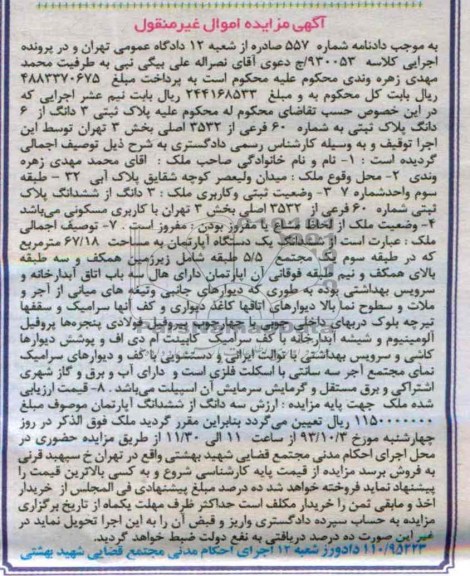 آگهی مزایده اموال غیرمنقول
به موجب دادنامه شماره ۵۵۷ صادره از شعبه ۱۲ دادگاه عمومی تهران و در پرونده
اجرایی کلاسه ۹۳۰۰۵۳/ج دعوی آقای نصراله علی بیگی نبی به طرفیت محمد
مهدی زهره وندی محکوم علیه محکوم است به پرداخت مبلغ ۴۸۸۳۳۷۰۶۷۵
ریال بابت کل محکوم به و مبلغ ۲۴۴۱۶۸۵۳۳ ریال بابت نیم عشر اجرایی که
در این خصوص حسب تقاضای محکوم له محکوم علیه پلاک ثبتی ۳ دانگ از ۶
دانگ پلاک ثبتی به شماره ۶۰ فرعی از ۳۵۳۲ اصلی بخش ۳ تهران توسط این
اجرا توقیف و به وسیله کارشناس رسمی دادگستری به شرح ذیل توصیف اجمالی
گردیده است : ۱- نام و نام خانوادگی صاحب ملک : آقای محمد مهدی زهره
وندی ۲- محل وقوع ملک : میدان ولیعصر کوچه شقایق پلاک آبی ۳۲ – طبقه
سوم واحدشماره ۷ ۳- وضعیت ثبتی وکاربری ملک : ۳ دانگ از ششدانگ پلاک
ثبتی شماره ۶۰ فرعی از ۳۵۳۲ اصلی بخش ۳ تهران با کاربری مسکونی می‌باشد
۴- وضعیت ملک از لحاظ مشاع یا مفروز بودن : مفروز است . ۷- توصیف اجمالی
ملک : عبارت است از ششدانگ یک دستگاه آپارتمان به مساحت ۶۷/۱۸ مترمربع
که در طبقه سوم یک مجتمع ۵/۵ طبقه شامل زیرزمین همکف و سه طبقه
بالای همکف و نیم طبقه فوقانی آن اپارتمان دارای هال سه باب اتاق آبدارخانه و
سرویس بهداشتی بوده به طوری که دیوارهای جانبی وتیغه های میانی از آجر و
ملات و سطوح نما بالا دیوارهای اتاقها کاغذ دیواری و کف آنها سرامیک و سقفها
تیرچه بلوک دربهای داخلی چوبی با چهارچوب پروفیل فولادی پنجره‌ها پروفیل
آلومینیوم و شیشه آبدارخانه با کف سرامیک کابینت ام دی اف و پوشش دیوارها
کاشی و سرویس بهداشتی با توالت ایرانی و دستشویی با کف و دیوارهای سرامیک
نمای مجتمع آجر سه سانتی با اسکلت فلزی است و دارای آب و برق و گاز شهری
اشتراکی و برق مستقل و گرمایش سرمایش آن اسپیلت می‌باشد . ۸- قیمت ارزیابی
شده ملک جهت پایه مزایده : ارزش سه دانگ از ششدانگ آپارتمان موصوف مبلغ
۱۱۵۰۰۰۰۰۰۰ ریال تعیین می‌گردد بنابراین مقرر گردید ملک فوق الذکر در روز
چهارشنبه مورخ ۹۳/۱۰/۳ از ساعت ۱۱ الی ۱۱/۳۰ از طریق مزایده حضوری در
محل اجرای احکام مدنی مجتمع قضایی شهید بهشتی واقع در تهران خ سپهبد قرنی
به فروش برسد مزایده از قیمت پایه کارشناسی شروع و به کسی بالاترین قیمت را
پیشنهاد نماید فروخته خواهد شد ده درصد مبلغ پیشنهادی فی المجلس از خریدار
اخذ و مابقی ثمن را خریدار مکلف است حداکثر ظرف مهلت یکماه از تاریخ برگزاری
مزایده به حساب سپرده دادگستری واریز و قبض آن را به این اجرا تحویل نماید در
غیر این صورت ده درصد دریافتی به نفع دولت ضبط خواهد گردید.
۱۱۰/۹۵۲۲۳ دادورز شعبه ۱۲ اجرای احکام مدنی مجتمع قضایی شهید بهشتی